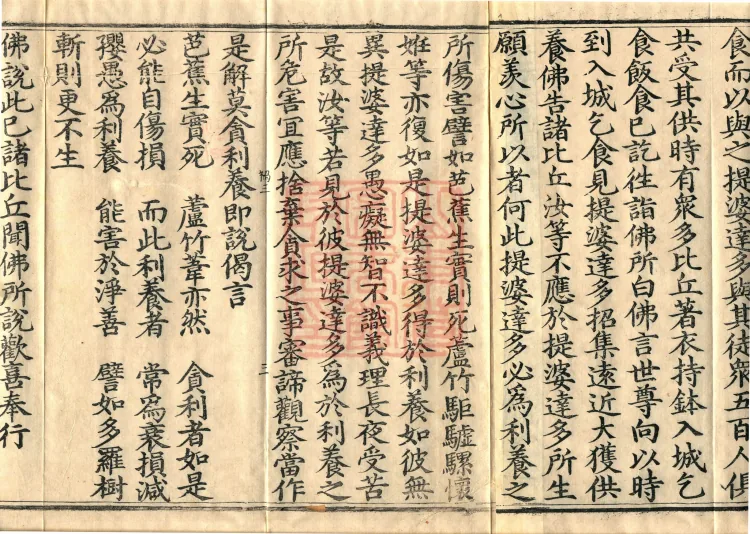 食而以與之提婆達多與其徒衆五百人俱
共受其供時有衆多比丘著衣持鉢入城乞
食飯食已訖往詣佛所白佛言世尊向以時
到入城乞食見提婆達多招集遠近大獲供
養佛告諸比丘汝等不應於提婆達多所生
願羨心所以者何此提婆達多必為利養之
所傷害譬如芭蕉生實則死蘆竹駏驉騾懷
姙等亦復如是提婆達多得於利養如彼無
異提婆達多愚癡無智不識義理長夜受苦
是故汝等若見於彼提婆達多為於利養之
所危害宜應捨棄貪求之事審諦觀察當作
是解莫貪利養即說偈言
芭蕉生實死 蘆竹葦亦然 貪利者如是
必能自傷損 而此利養者 常為衰損減
孾愚為利養 能害於淨善 譬如多羅樹
斬則更不生
佛說此已諸比丘聞佛所說歡喜奉行